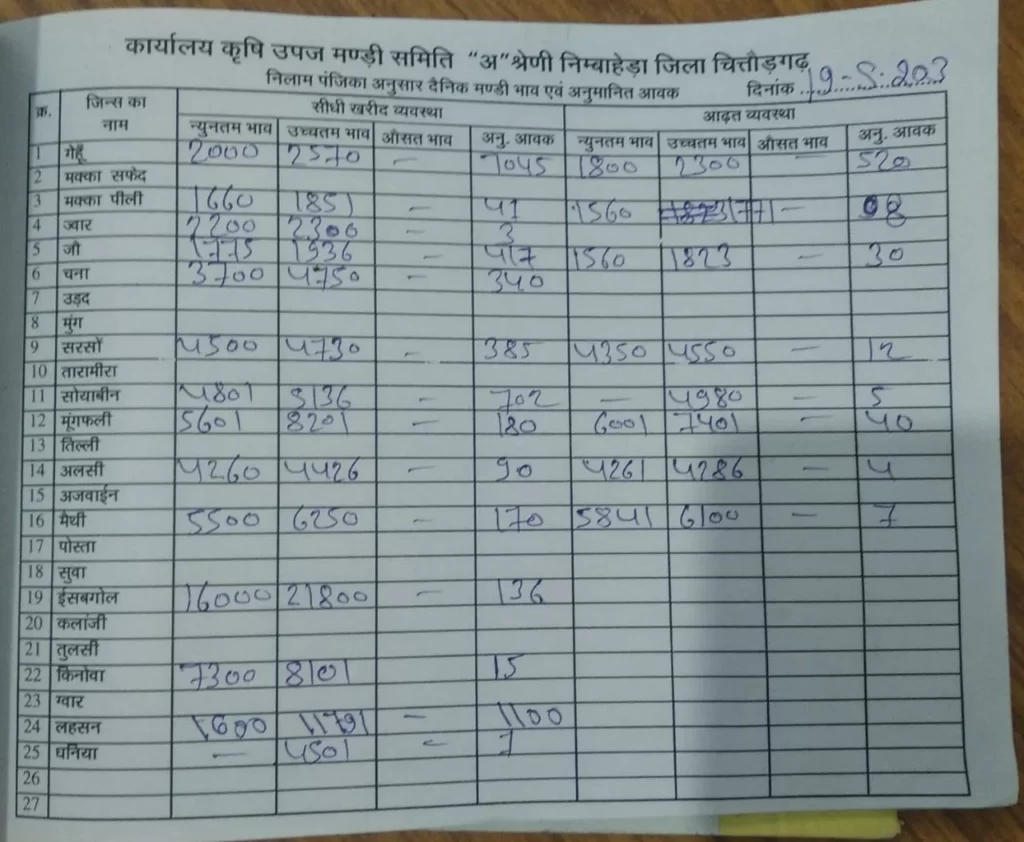 कार्यालय कृषि उपज मण्डी समिति "अ" श्रेणी निम्बाहेड़ा जिला चित्तौड़गढ़
निलाम पंजिका अनुसार दैनिक मण्डी भाव एवं अनुमानित आवक दिनांक 19-5-203
क्र. जिन्स का नाम सीधी खरीद व्यवस्था आढ़त व्यवस्था
न्युनतम भाव उच्चतम भाव औसत भाव अनु. आवक न्युनतम भाव उच्चतम भाव औसत भाव अनु. आवक
1 गेहूँ 2000 2570 - 7045 1800 2300 - 520
2 मक्का सफेद
3 मक्का पीली 1660 1851 - 41 1560 1771 - 8
4 ज्वार 2200 2300 - 3
5 जौ 1775 1936 - 417 1560 1823 - 30
6 चना 3700 4750 - 340
7 उड़द
8 मुंग
9 सरसों 4500 4730 - 385 4350 4550 - 12
10 तारामीरा
11 सोयाबीन 4801 5136 - 702 - 4980 - 5
12 मूंगफली 5601 8201 - 180 6001 7401 - 40
13 तिल्ली
14 अलसी 4260 4426 - 90 4261 4286 - 4
15 अजवाईन
16 मैथी 5500 6250 - 170 5841 6100 - 7
17 पोस्ता
18 सुवा
19 ईसबगोल 16000 21800 - 136
20 कलांजी
21 तुलसी
22 किनोवा 7300 8101 15
23 ग्वार
24 लहसन 1600 11791 - 1100
25 धनिया - 4501 - 7
26
27